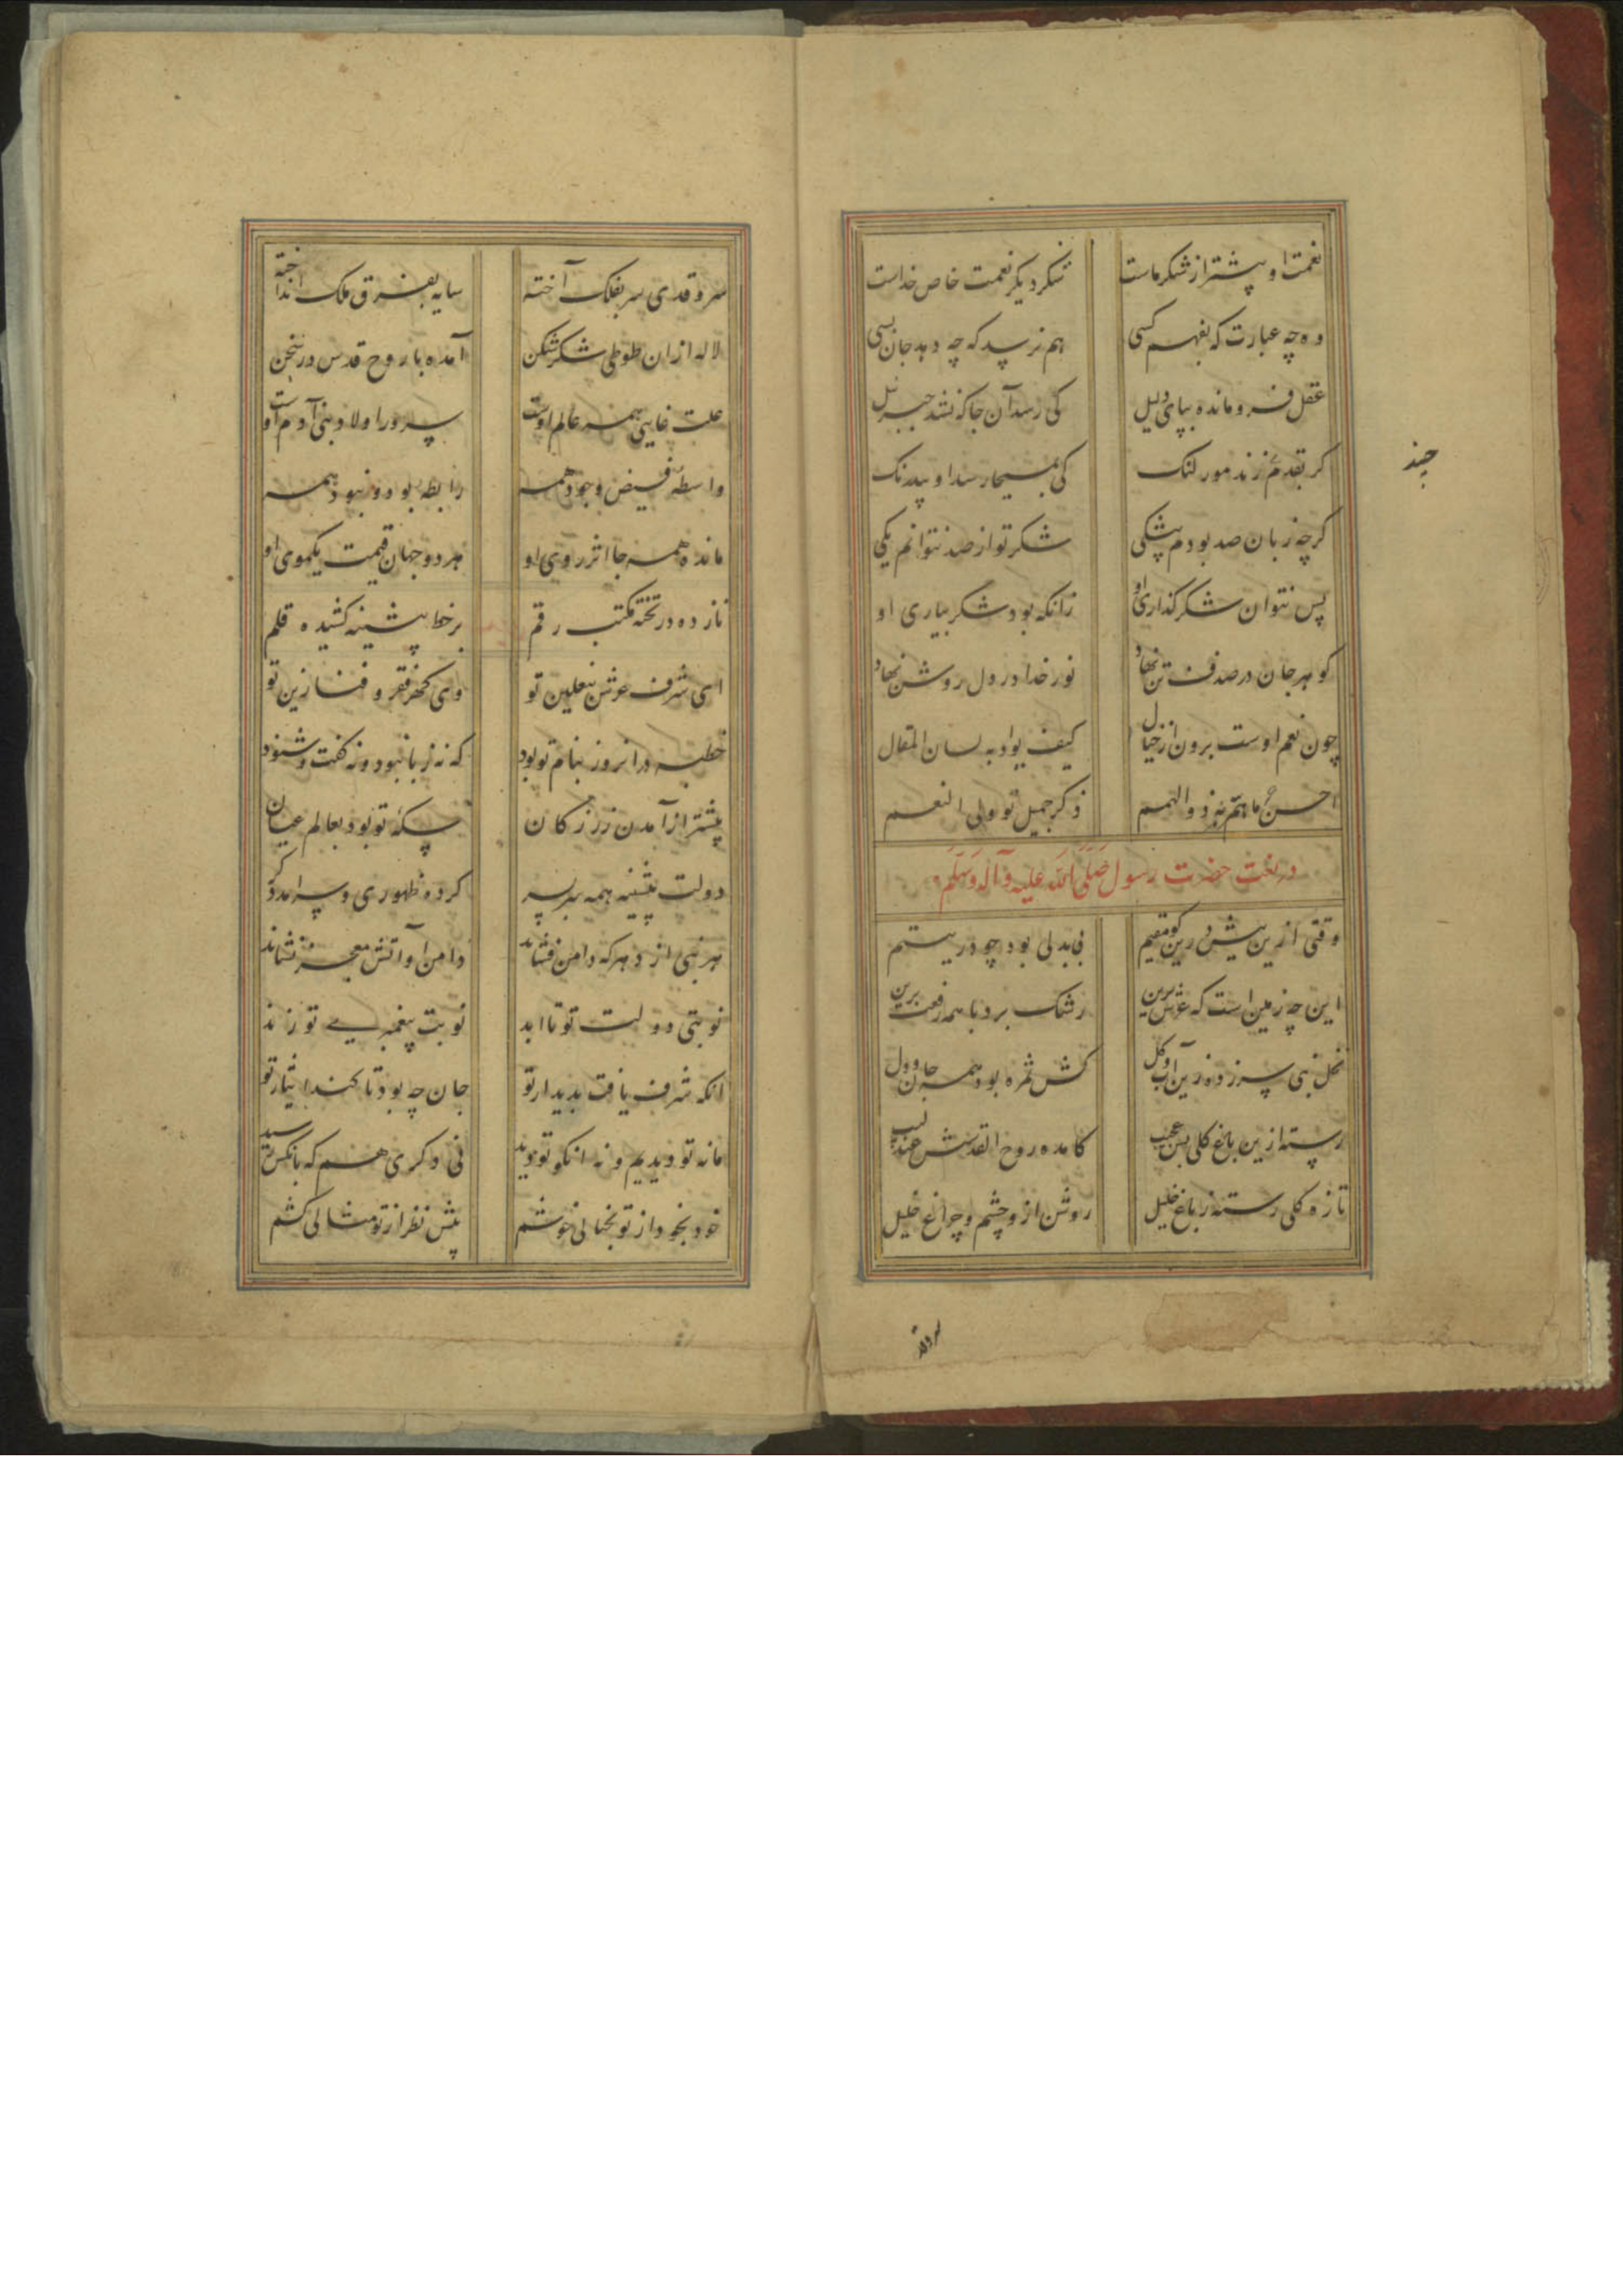 نعمت او بیشتر از شکر ماست شکر دیگر نعمت خاص خداست
وه چه عبارت که بفهم کسی هم نرسد که چه دهد جان بسی
عقل فرو مانده بپای دلیل کی رسد آن جا که نشد جبرئیل
گر بقدم زند مور لنک کی بمسیحا رسد او بیدرنک
گرچه زبان صد بودم بیشکی شکر تو از صد نتوانم یکی
پس نتوان شکر گذاری او زانکه بود شکر بیاری او
گوهر جان در صدف تن نهاد نور خدا در دل روشن نهاد
چون نعم اوست برون از خیال کیف یوادیه لسان المقال
احسن ما ذوالهمم ذکر جمیل تو ولی النعم
در نعت حضرت رسول صلی الله علیه وآله وسلم
وقتی ازین پیش درین کو مقیم بی بدلی بود چو در یتیم
این چه زمین است که عرش برین رشک برد با همه رفعت برین
نخل نبی سر زده زین آب و گل کش ثمره بود همه جان و دل
رسته ازین باغ گلی بس عجب کامده روح القدسش عندلیب
تازه گلی رسته ز باغ خلیل روشن ازو چشم و چراغ خلیل
چند
سروقد
سرو قدی سر بفلک آخته سایه بفرق ملک انداخته
لاله ازان طوطی شکر شکن آمده با روح قدس در سخن
علت غایی همه عالم اوست سرور اولاد بنی آدم اوست
واسطه فیض وجود همه رابطه بود و نبود همه
مانده همه جا اثر روی او هر دو جهان قیمت یکموی او
نازده در تخته مکتب رقم بر خط پیشینه کشیده قلم
ای شرف عرش نعلین تو وی فقر و فنا زین تو
خطبه در انروز بنام تو بود که نه زبان بود و نه گفت و شنود
پیشتر از آمدن زر ز کان سکه تو بود بعالم عیان
دولت پیشینه همه سربسر کرده ظهوری و سرامد دگر
هر نبی از دهر که دامن فشاند دامن او آتش معجز نشاند
نوبتی دولت تو تا ابد نوبت پیغمبری تو زند
انکه شرف یافت بدیدار تو جان چه بود تا کند ایثار تو
ما نه تو دیدیم و نه انکو تو دید نی دگری هم که بانکس رسید
خود بخود از تو بخیالی خوشم پیش نظر از تو مثالی کشم